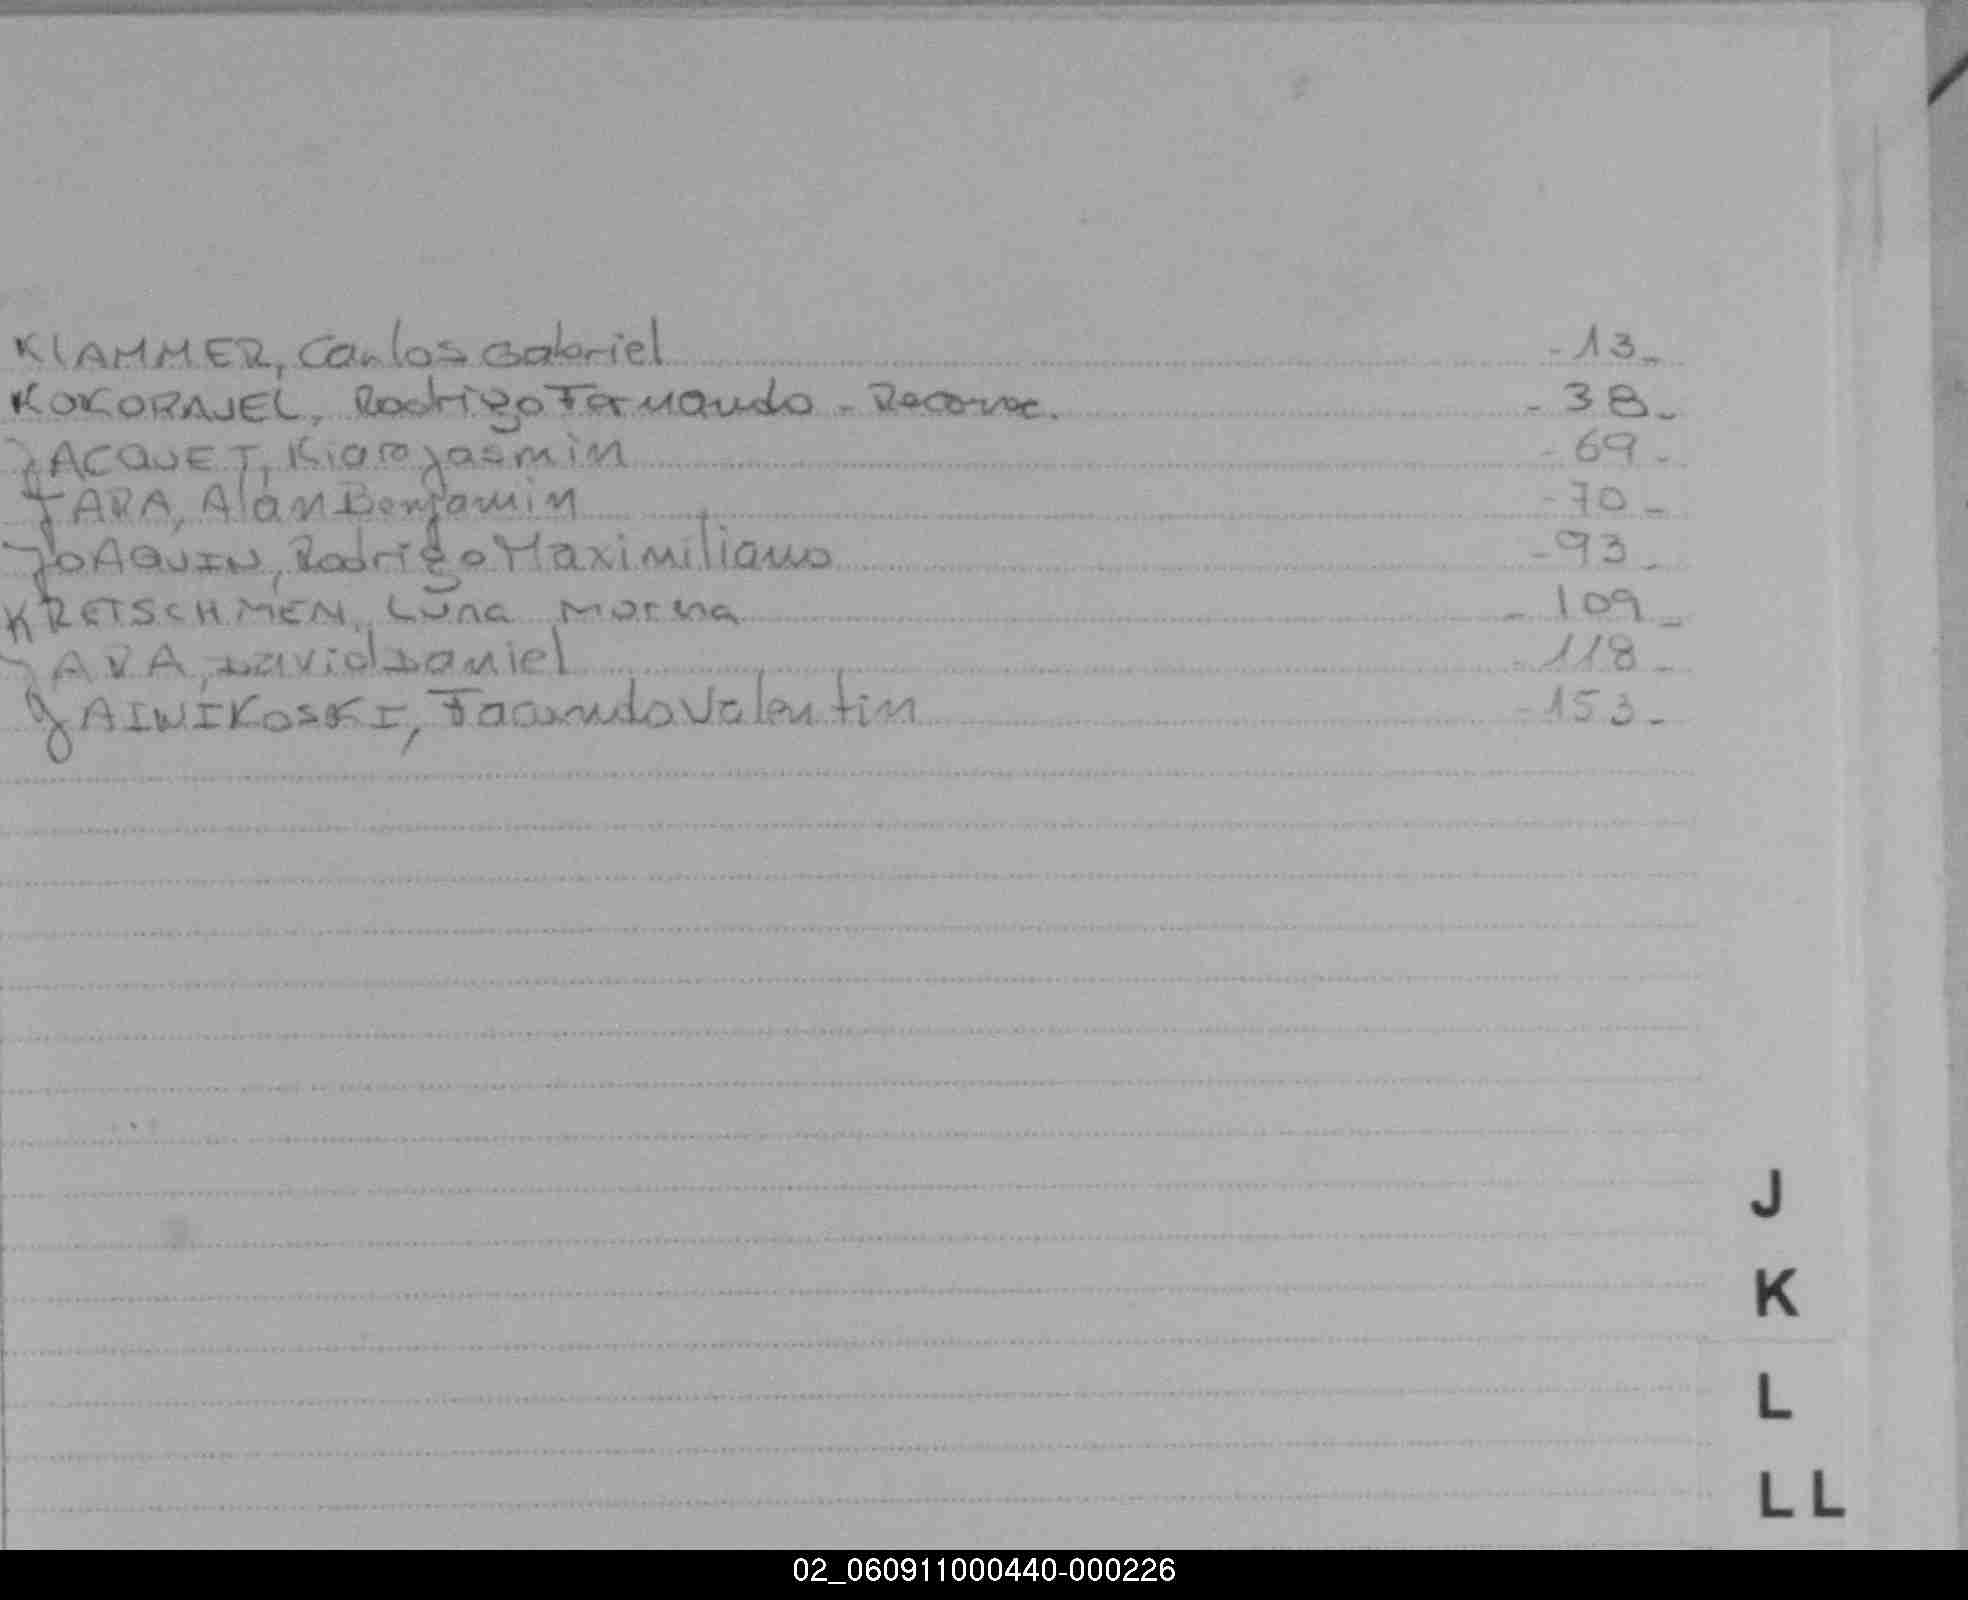 KLAMMER, Carlos Gabriel -13-
KOKORAJEL, Rodrigo Fernando - Reconoc. -38-
JACQUET, Kiara Jasmin -69-
JARA, Alan Benjamin -70-
JOAQUIN, Rodrigo Maximiliano -93-
KRETSCHMEN, Luna Morena -109-
JARA, David Daniel -118-
JAINIKOSKI, Facundo Valentin -153-
J
K
L
LL
02_060911000440-000226